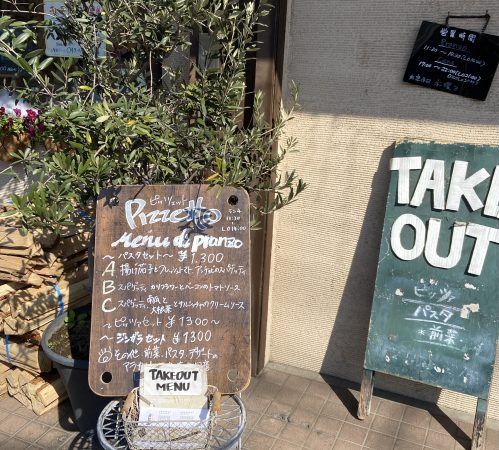 営業時間
ピッツェット
Pizzetto
ランチ
11:30
～
L.O 14:00
Menu di pranzo
～パスタセット～ ¥1,300
A 揚げ茄子とフレッシュトマト アンチョビのスパゲッティ
B スパゲッティ カリフラワーとベーコンのトマトソース
C スパゲッティ 大根葉とサルシッチャのクリームソース
～ピッツァセット ¥1300～
～ ¥1300
その他、前菜、パスタ、デザートの
TAKEOUT
MENU
TAKE
OUT
ピッツァ
パスタ
前菜